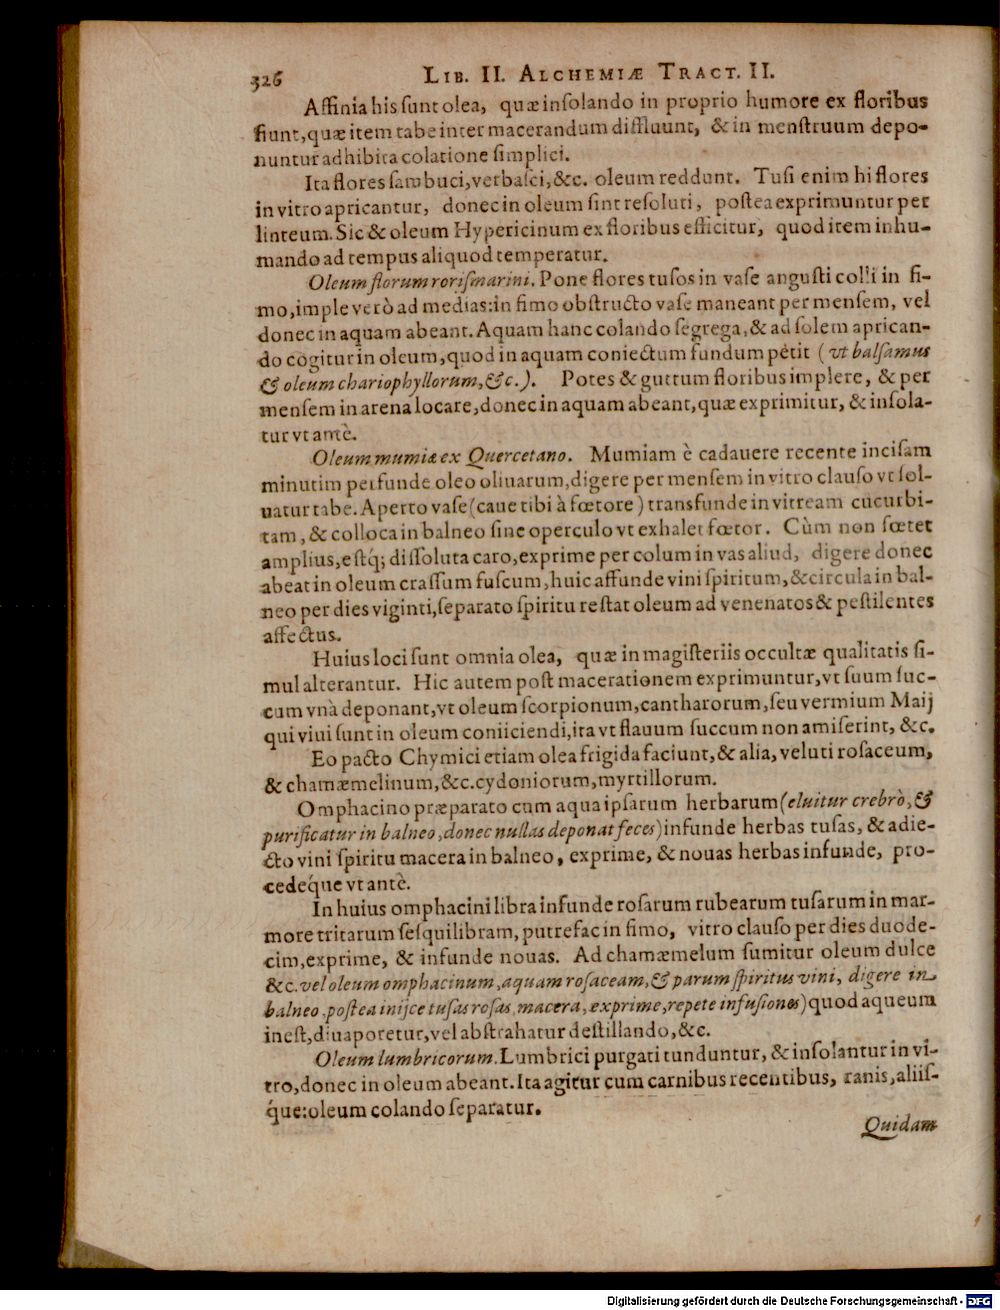 326 LIB. II. ALCHEMIÆ TRACT. II.
Affinia his sunt olea, quæ insolando in proprio humore ex floribus
fiunt, quæ item tabe inter macerandum diffluunt, & in menstruum depo-
nuntur adhibita colatione simplici.
Ita flores sambuci, verbasci, &c. oleum reddunt. Tusi enim hi flores
in vitro apricantur, donec in oleum sint resoluti, postea exprimuntur per
linteum. Sic & oleum Hypericinum ex floribus efficitur, quod item inhu-
mando ad tempus aliquod temperatur.
Oleum florum rorismarini. Pone flores tusos in vase angusti colli in fi-
mo, imple verò ad medias: in fimo obstructo vase maneant per mensem, vel
donec in aquam abeant. Aquam hanc colando segrega, & ad solem aprican-
do cogitur in oleum, quod in aquam coniectum fundum petit (vt balsamus
& oleum chariophyllorum, &c.). Potes & guttum floribus implere, & per
mensem in arena locare, donec in aquam abeant, quæ exprimitur, & insola-
tur vt antè.
Oleum mumiæ ex Quercetano. Mumiam è cadauere recente incisam
minutim perfunde oleo oliuarum, digere per mensem in vitro clauso vt sol-
uatur tabe. Aperto vase (caue tibi à fœtore) transfunde in vitream cucurbi-
tam, & colloca in balneo sine operculo vt exhalet fœtor. Cùm non fœtet
amplius, estq́; dissoluta caro, exprime per colum in vas aliud, digere donec
abeat in oleum crassum fuscum, huic affunde vini spiritum, & circula in bal-
neo per dies viginti, separato spiritu restat oleum ad venenatos & pestilentes
affectus.
Huius loci sunt omnia olea, quæ in magisteriis occultæ qualitatis si-
mul alterantur. Hic autem post macerationem exprimuntur, vt suum suc-
cum vnà deponant, vt oleum scorpionum, cantharorum, seu vermium Maij
qui viui sunt in oleum coniiciendi, ita vt flauum succum non amiserint, &c.
Eo pacto Chymici etiam olea frigida faciunt, & alia, veluti rosaceum,
& chamæmelinum, &c. cydoniorum, myrtillorum.
Omphacino præparato cum aqua ipsarum herbarum (eluitur crebrò, &
purificatur in balneo, donec nullas deponat feces) infunde herbas tusas, & adie-
cto vini spiritu macera in balneo, exprime, & nouas herbas infunde, pro-
cedéque vt antè.
In huius omphacini libra infunde rosarum rubearum tusarum in mar-
more tritarum sesquilibram, putrefac in fimo, vitro clauso per dies duode-
cim, exprime, & infunde nouas. Ad chamæmelum sumitur oleum dulce
&c. vel oleum omphacinum, aquam rosaceam, & parum spiritus vini, digere in
balneo, postea inijce tusas rosas, macera, exprime, repete infusiones) quod aqueum
inest, diuaporetur, vel abstrahatur destillando, &c.
Oleum lumbricorum. Lumbrici purgati tunduntur, & insolantur in vi-
tro, donec in oleum abeant. Ita agitur cum carnibus recentibus, ranis, aliis-
q́ue: oleum colando separatur.
Quidam
Digitalisierung gefördert durch die Deutsche Forschungsgemeinschaft - DFG